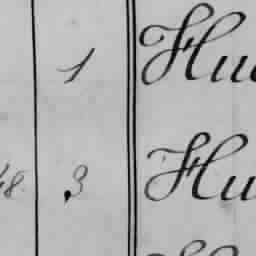 1 Hu
8 3 Hu